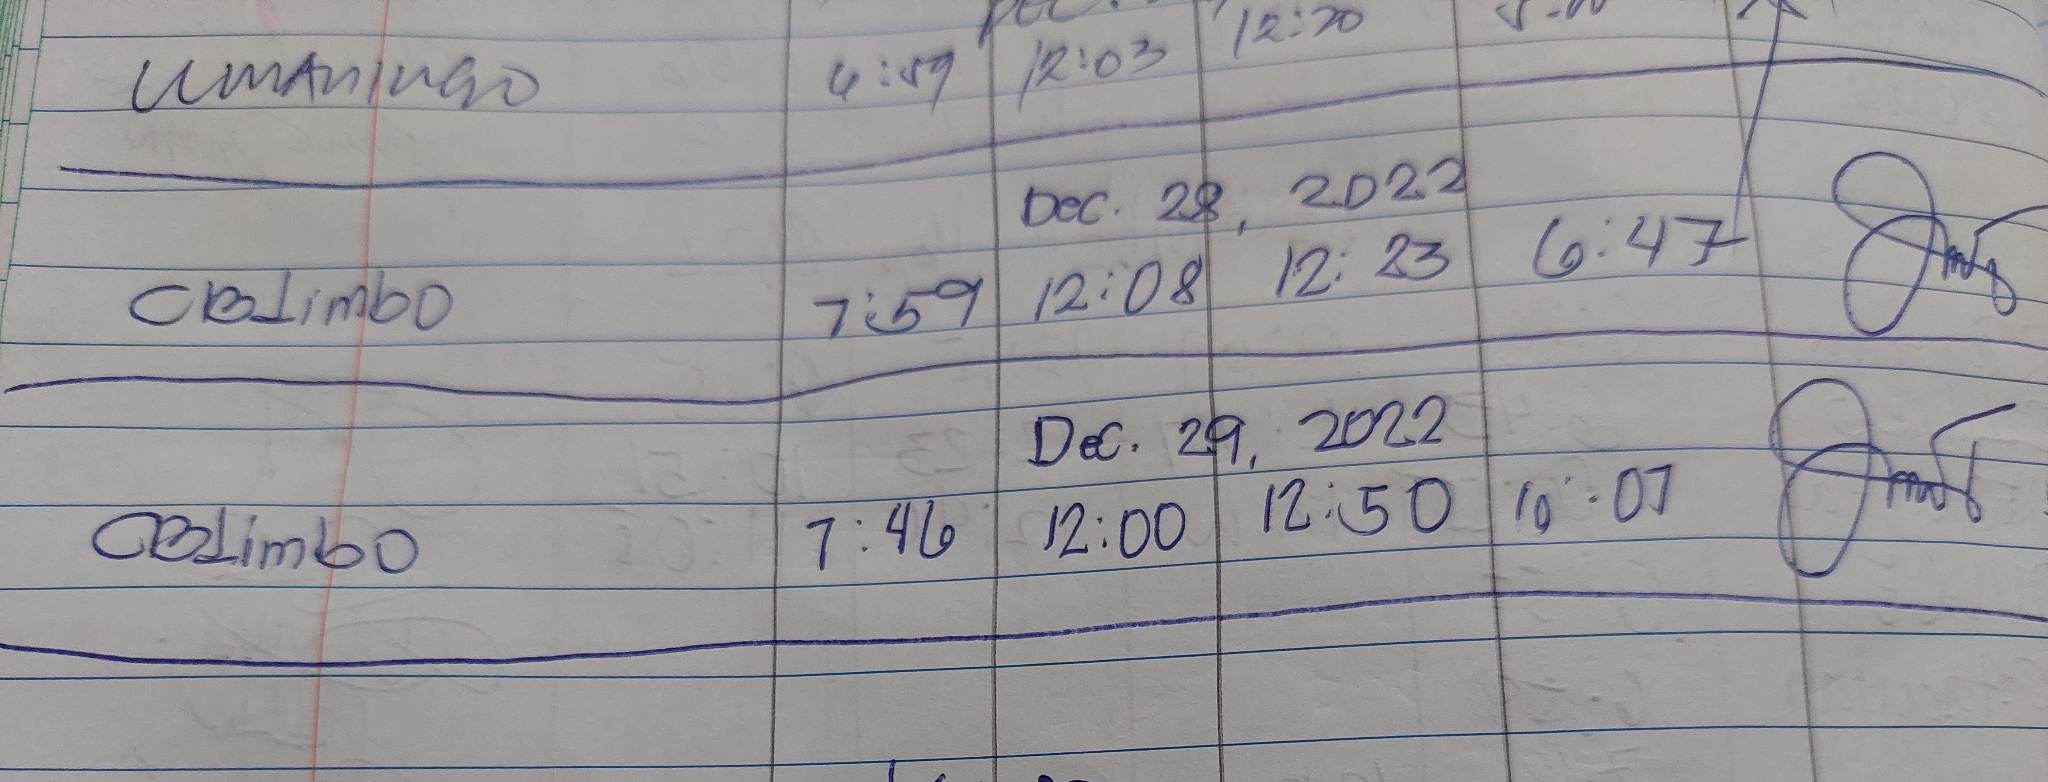 UMANINGO 6:59 12:03 12:20
Dec. 28, 2022
CBLimbo 7:59 12:08 12:23 6:47
Dec. 29, 2022
CBLimbo 7:46 12:00 12:50 16:07